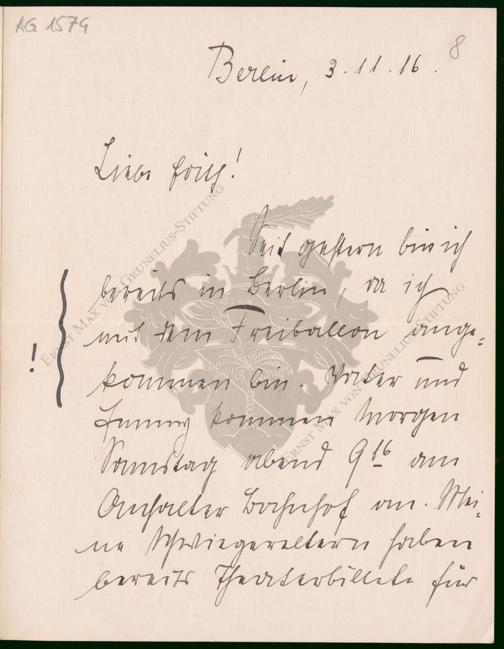 AG 1579
8
Berlin, 3.11.16.
Liebe Erich!
Seit gestern bin ich
bereits in Berlin, da ich
mit dem Freiballon ange-
!
kommen bin. Vater und
kommen Morgen
Samstag abend 9 16 am
Anhalter Bahnhof an. Mei-
ne Schwiegereltern haben
bereits Theaterbillete für
ERNST MAX VON GRUNELIUS-STIFTUNG
ERNST MAX VON GRUNELIUS-STIFTUNG